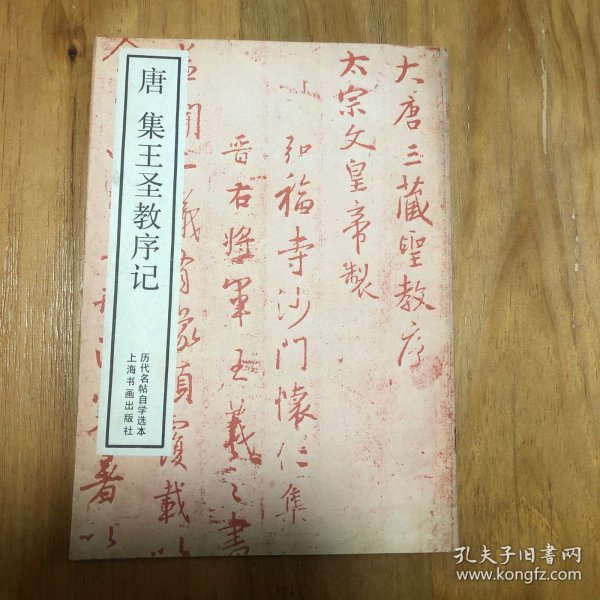 唐 集王圣教序记
历代名帖自学选本
上海书画出版社
大唐三藏聖教序
太宗文皇帝製
弘福寺沙門懷仁集
晋右將軍王羲之書
盖聞二儀有像顯覆載以
孔夫子旧书网
www.kongfz.com